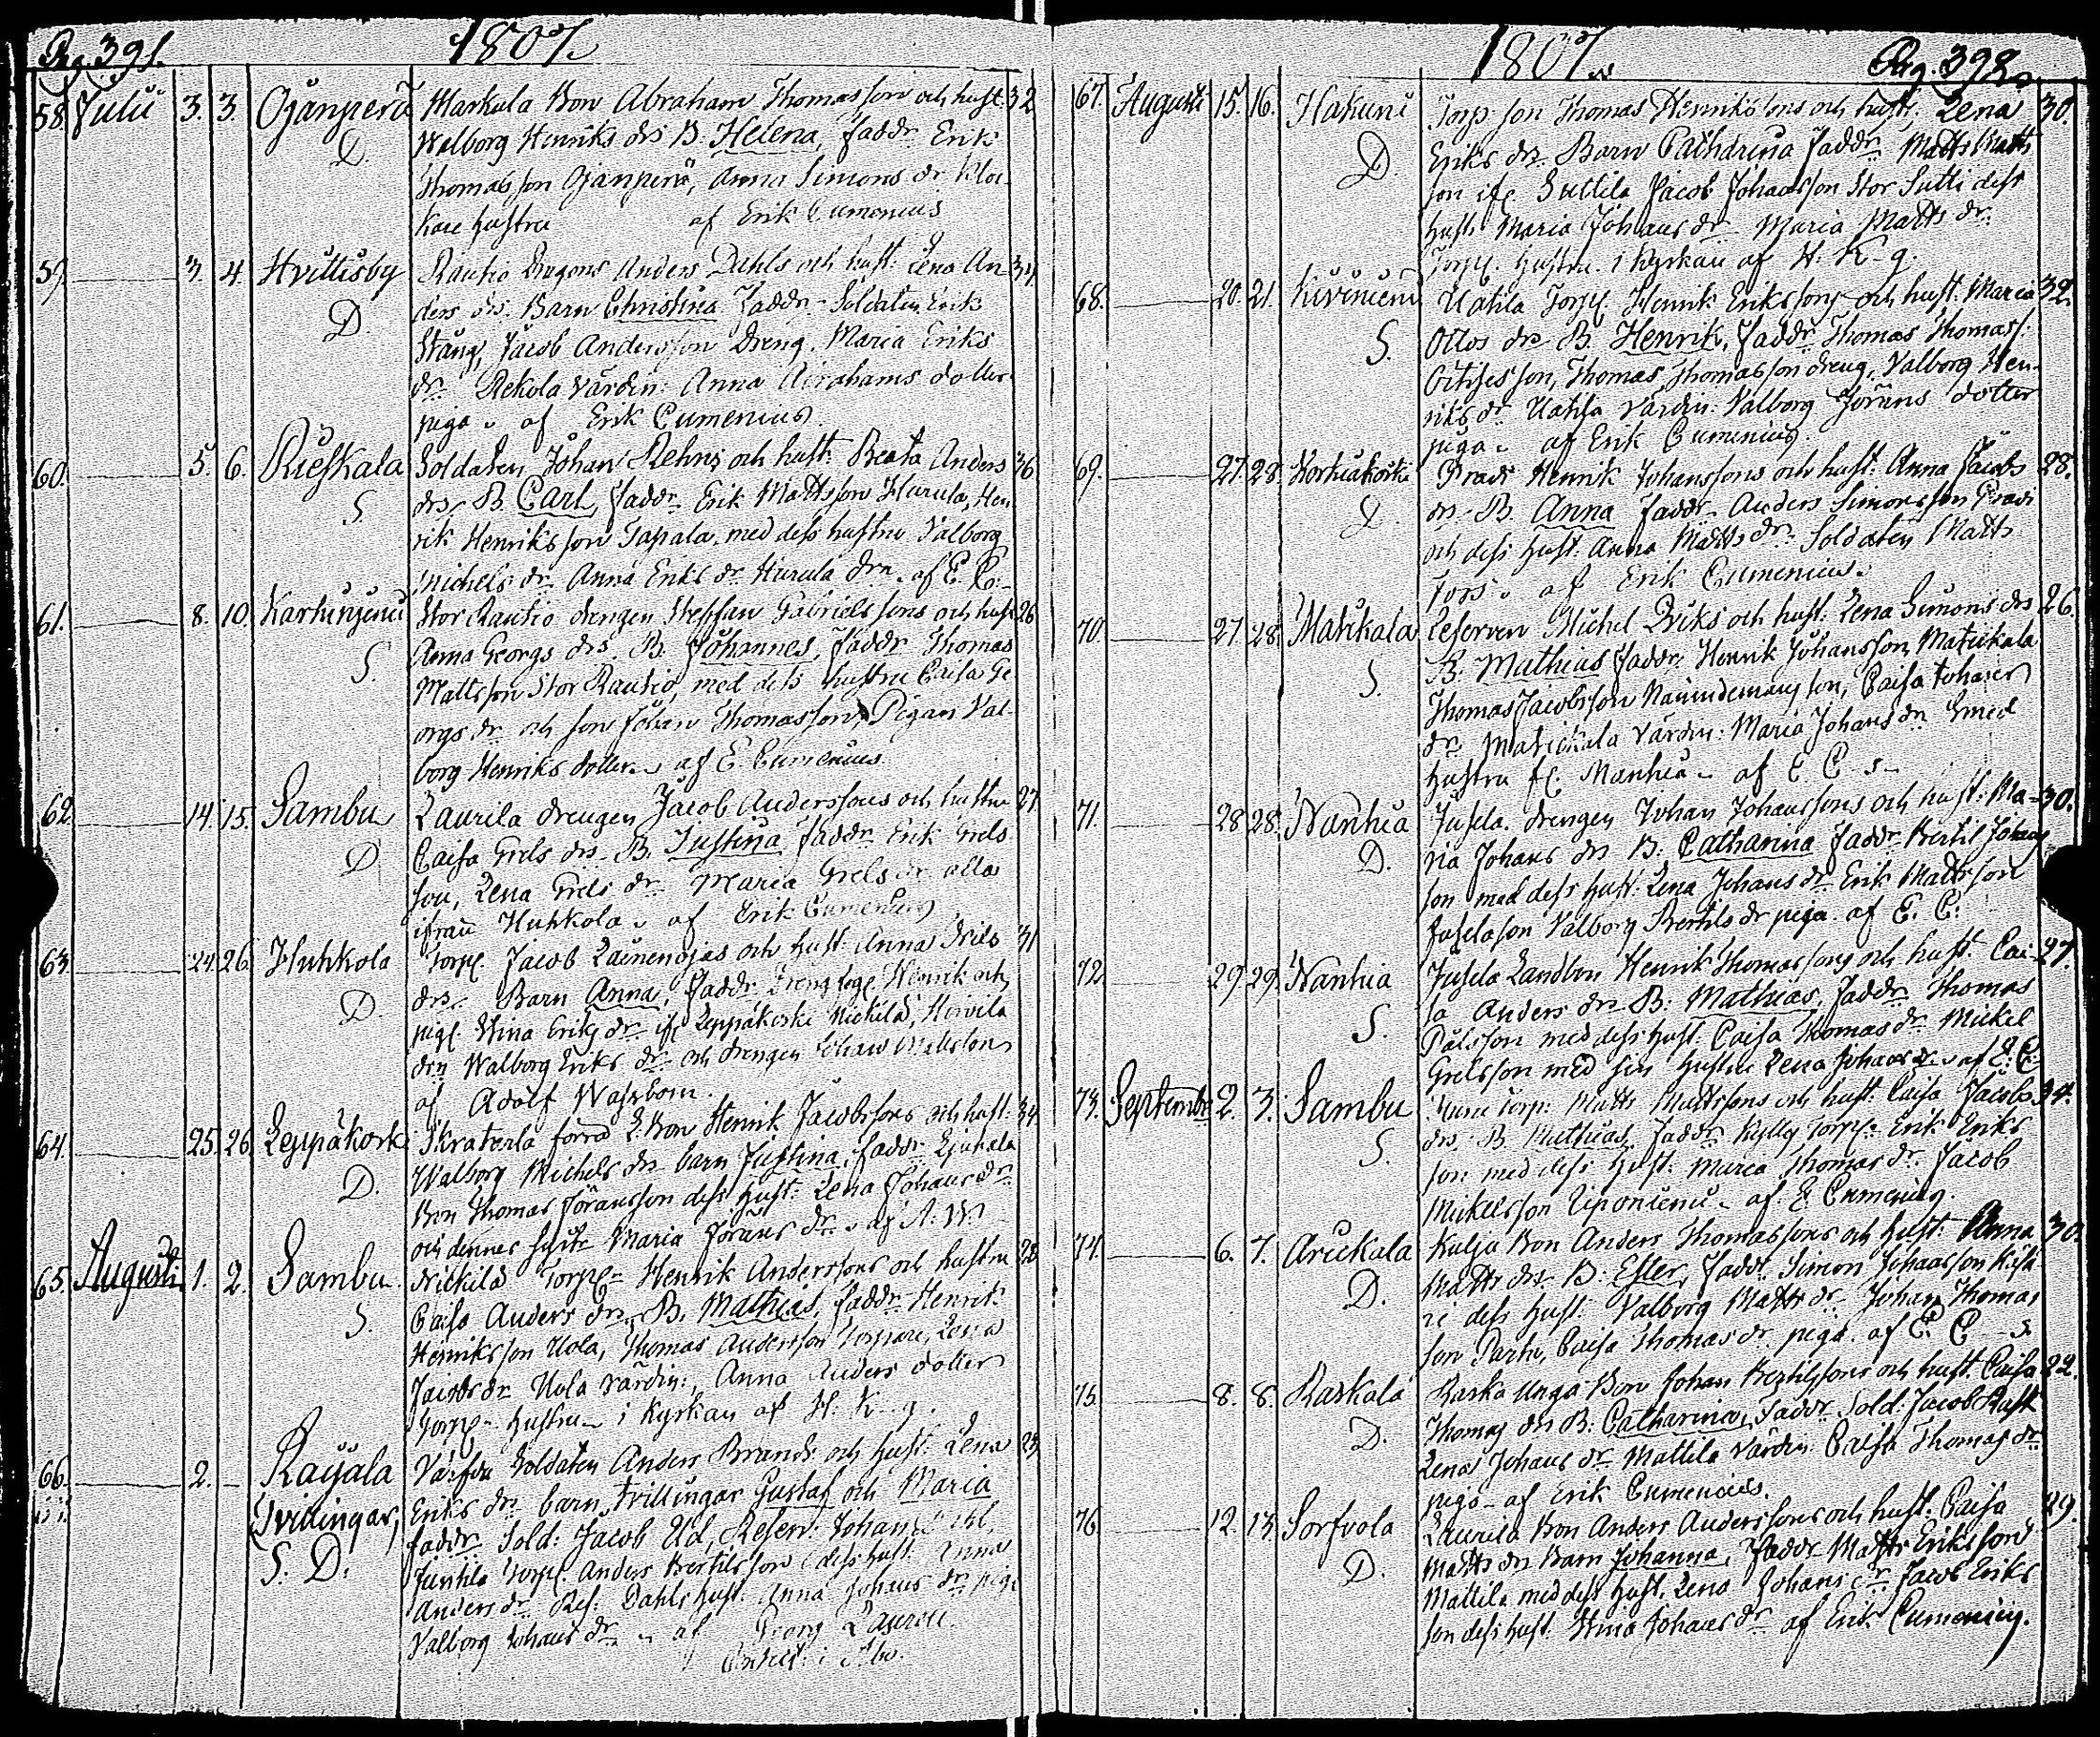 Pag. 391.
1807.
58. Julii 3. 3. Ojanperä Markula Bon Abraham Thomasson och hust: 32
D. Walborg Henriks drs B. Helena, faddr Erik
Thomasson Ojanperä, Anna Simons dr kloc-
kare hustru af Erik Cumenius
59. 3. 4. Hvittisby Rautio Dragons Anders Dahls och hust: Lena An- 34
D. ders drs Barn Christina faddr Soldaten Erik
Stång, Jacob Andersson Dreng. Maria Eriks
dr Rekola värdin: Anna Abrahams dotter
piga af Erik Cumenius
60. 5. 6. Rieskala Soldaten Johan Rehns och hust: Beata Anders 36
S. drs B. Carl, faddr Erik Mattsson Hurula, Hen
rik Henriksson Tapala, med dess hustru Valborg
Michels dr Anna Eriks dr Hurula drn af E. C.
61. 8. 10. Karhiniemi Stor Rautio drengen Stephan Gabrielssons och hust 26
S. Anna Georgs drs. B. Johannes, faddr Thomas
Mattsson Stor Rautio, med dess hustru Caisa Ge
orgs dr och son Johan Thomasson, Pigan Val-
borg Henriks dotter af E. Cumenius
62. 14. 15. Sambu Laurila drengen Jacob Anderssons och hustru 27
D. Caisa Grels drs B. Justina faddr Erik Grels
son, Lena Grels dr Maria Grels dr alla
ifrån Huhkola af Erik Cumenius
63. 24. 26. Huhkola Torp. Jacob och hust: Anna Nils 31
D. drs Barn Anna, faddr Henrik och
pig. Stina Eriks dr if. Leppäkoski Nickilä, Hirvila
drn Walborg Eriks dr och drengen Johan Mattsson
af Adolf Wahrbom.
64. 25. 26. Leppäkoski Skraterla L. Bon Henrik Jacobssons och hust: 34
D. Walborg Michels drs barn Justina, faddr
Bon Thomas Göransson dess hust: Lena Johans dr
och dennes Maria Görans dr af A: W:
65. Augusti 1. 2. Sambu. Nickilä Torp. Henrik Anderssons och hustru 28
S. Caisa Anders drs, B. Mathias, faddr Henrik
Henriksson Uola, Thomas Andersson torpare, Lena
Jacobs dr Uola värdin:, Anna Anders dotter
torp. hustru i Kyrkan af H. K-g.
66. 2. Raijala Soldaten Anders Brands och hust: Lena 23
(Tvillingar, Eriks drs barn, tvillingar Gustaf och Maria
S. D. faddr Sold: Jacob Ud, Reserv: Johan
Junttila Torp. Anders Bertilsson dess hust: Anna
Anders dr Res: Dahls hust: Anna Johans dr pig.
Valborg Johans dr af Georg
i Åbo.
1807.
Pag. 392.
67. Augusti 15. 16. Hakuni Torp. son Thomas Henrikssons och hust: Lena 30.
D. Eriks drs. Barn Cathdrina faddr Matts Matts
son if. Suttila Jacob Johansson Stor Sutti dess
hust: Maria Johans dr Maria Matts dr
Torp. hustru. i Kyrkan af H. K-g.
68. 20. 21. Kiviniemi Uotila Torp. Henrik Erikssons och hust: Maria 32.
S. Ottos drs B. Henrik, faddr Thomas Thomass:
Thomas Thomasson dreng. Valborg Hen-
riks dr Uotila värdin: Valborg Jörans dotter
piga af Erik Cumenius.
69. 27. 28. Korkiakoski Pradi Henrik Johanssons och hust: Anna Jacobs 28.
D. drs B. Anna faddr Anders Simonsson Pradi
och dess hust: Anna Matts dr Soldaten Matts
Fors af Erik Cumenius
70. 27. 28. Matikala Reserven Michel Eriks och hust: Lena Simons drs 26.
S. B. Mathias faddr Henrik Johansson Matikala
Thomas Jacobsson Nämndemans son, Caisa Johans
dr Matikala värdin: Maria Johans dr Smed
hustru if. Manhia af E. C-s
71. 28. 28. Wanhia Jusela drengen Johan Johanssons och hust: Ma- 30.
D. ria Johans drs B: Catharina faddr Bertil Johans
son med dess hust: Lena Johans dr Erik Mattsson
Juselason Valborg Bertils dr piga af E. C.
72. 29. 29. Wanhia Jusela Landbon Henrik Thomassons och hust. Cai- 27.
S. sa Anders drs B: Mathias, faddr Thomas
Pålsson med dess hust: Caisa Thomas dr Mickel
Grelsson med sin hustru Lena Johans dr af E. C.
73. Septembr 2. 3. Sambu torp: Matts Mattssons och hust: Caisa Jacobs 34.
S. drs B. Mathias, faddr Kylly torp. Erik Eriks
son med dess hust: Maria Thomas dr. Jacob
Mickelsson af E. Cumenius.
74. 6. 7. Arickala Kulju Bon Anders Thomassons och hust: Anna 30.
D. Matts drs B: Ester, faddr Simon Johansson
dess hust: Valborg Matts dr Johan Thomas
son Caisa Thomas dr piga af E. C-s
75. 8. 8. Raskala Raska Unga Bon Johan Bertilssons och hust. Caisa 22.
D. Thomas drs B: Catharina, faddr Sold: Jacob Rask
Lena Johans dr Mattila värdin Caisa Thomas dr
piga af Erik Cumenius.
76. 12. 13. Sorfvola Laurila Bon Anders Anderssons och hust: Caisa 29.
D. Matts drs Barn Johanna, faddr Matts Eriksson
Mattila med dess hust. Lena Johans dr Jacob Eriks
son dess hust: Stina Johans dr af Erik Cumenius.